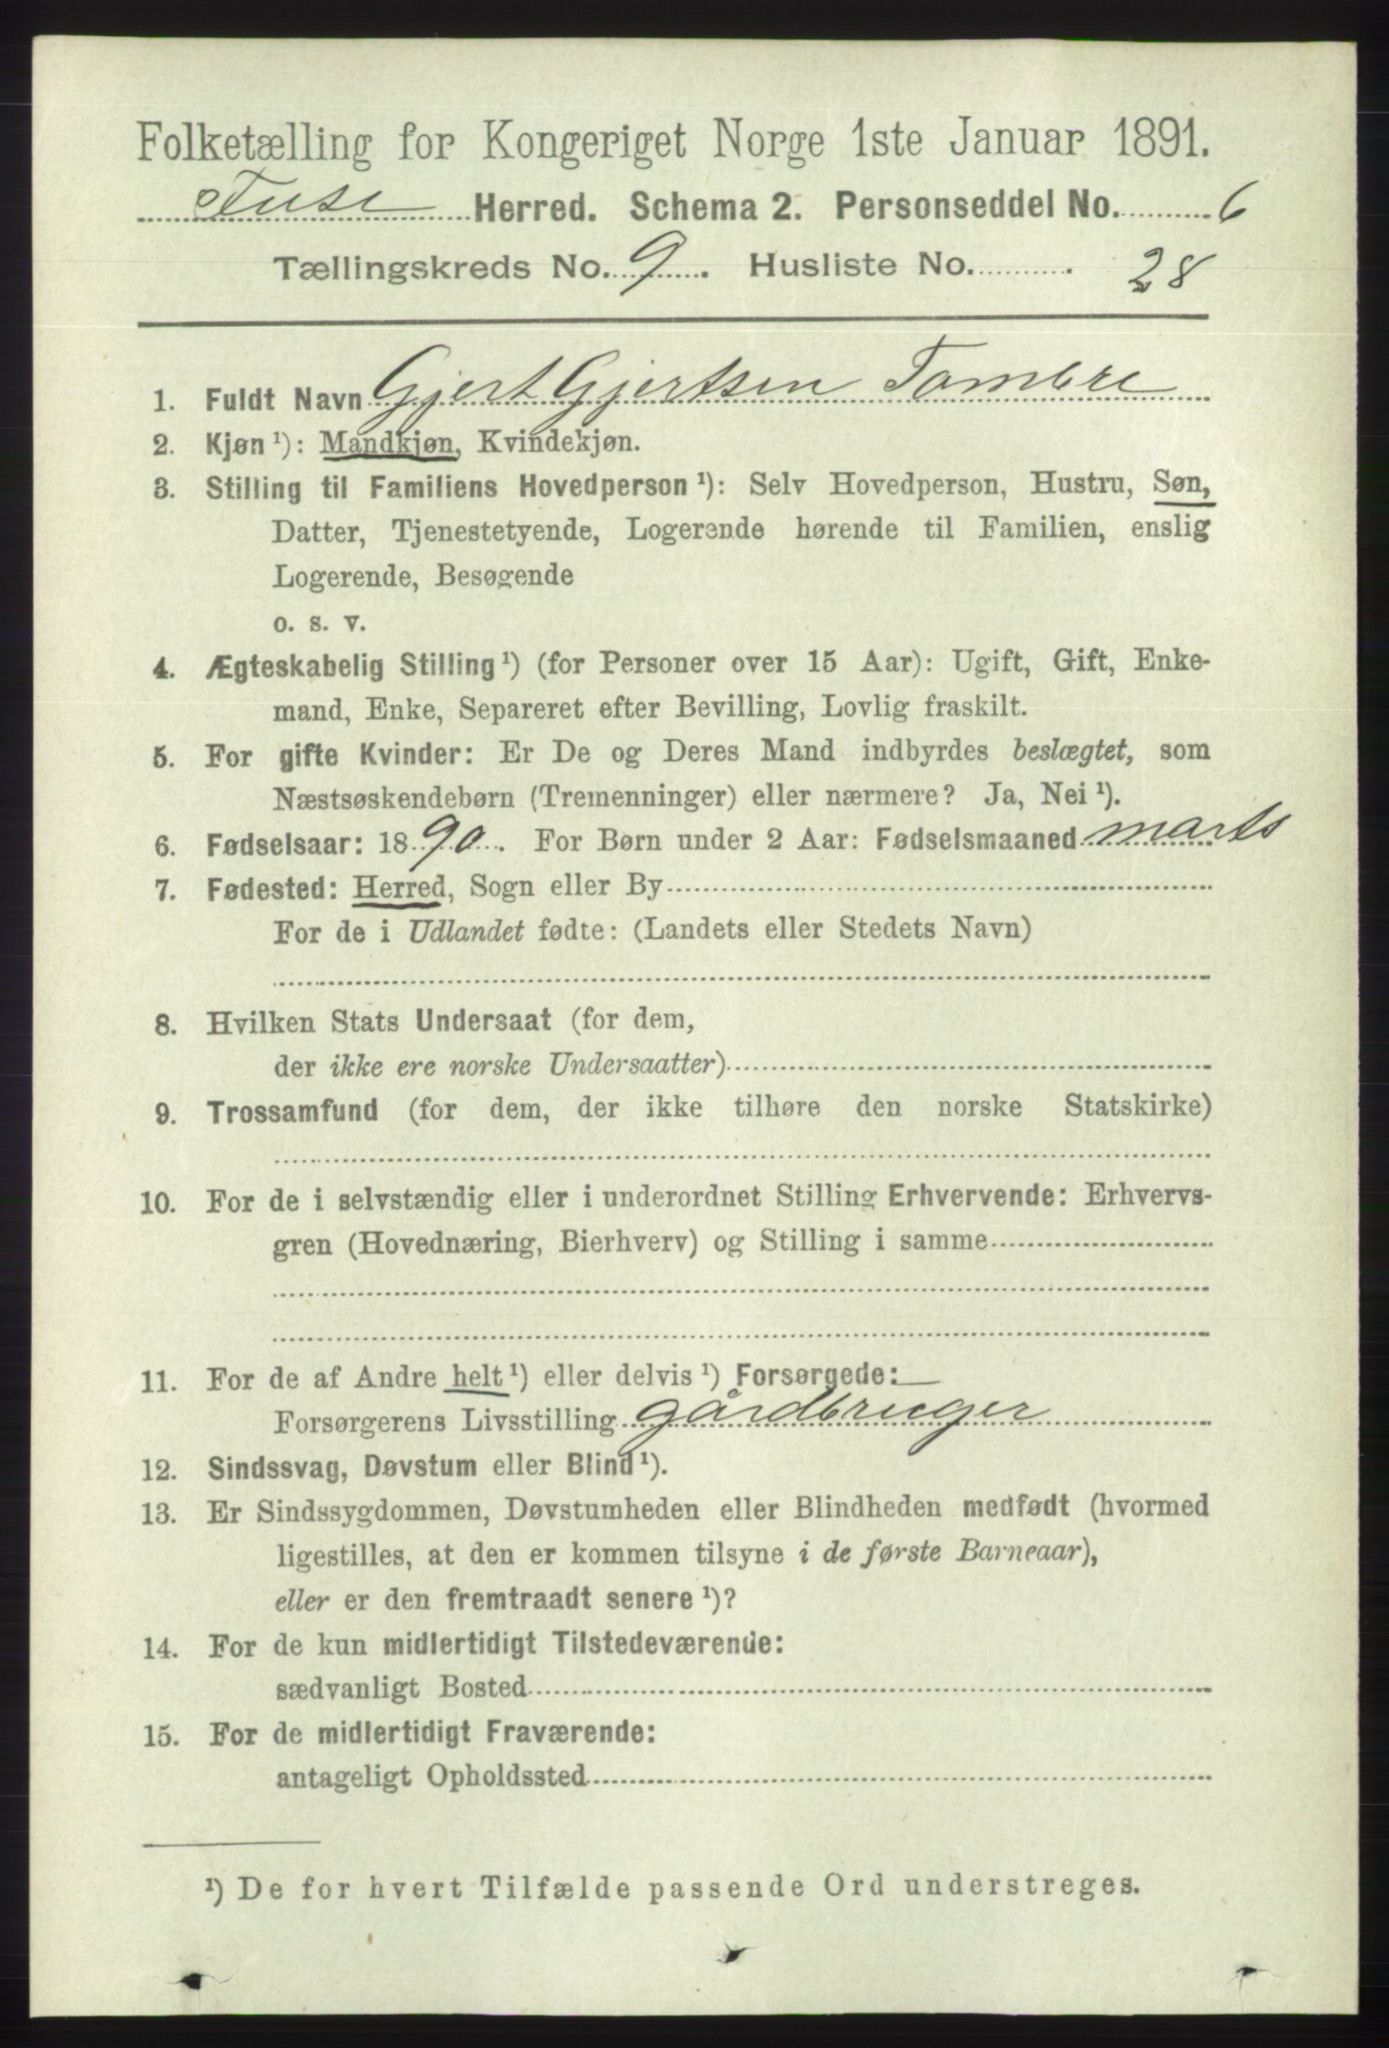 Folketælling for Kongeriget Norge 1ste Januar 1891.
Fuse Herred. Schema 2. Personseddel No. 6
Tællingskreds No. 9. Husliste No. 28
1. Fuldt Navn Gjert Gjertsen Tombre
2. Kjøn ¹): Mandkjøn, Kvindekjøn.
3. Stilling til Familiens Hovedperson ¹): Selv Hovedperson, Hustru, Søn,
Datter, Tjenestetyende, Logerende hørende til Familien, enslig
Logerende, Besøgende
o. s. v.
4. Ægteskabelig Stilling ¹) (for Personer over 15 Aar): Ugift, Gift, Enke-
mand, Enke, Separeret efter Bevilling, Lovlig fraskilt.
5. For gifte Kvinder: Er De og Deres Mand indbyrdes beslægtet, som
Næstsøskendebørn (Tremenninger) eller nærmere? Ja, Nei ¹).
6. Fødselsaar: 1890. For Børn under 2 Aar: Fødselsmaaned marts
7. Fødested: Herred, Sogn eller By
For de i Udlandet fødte: (Landets eller Stedets Navn)
8. Hvilken Stats Undersaat (for dem,
der ikke ere norske Undersaatter)
9. Trossamfund (for dem, der ikke tilhøre den norske Statskirke)
10. For de i selvstændig eller i underordnet Stilling Erhvervende: Erhvervs-
gren (Hovednæring, Bierhverv) og Stilling i samme
11. For de af Andre helt ¹) eller delvis ¹) Forsørgede:
Forsørgerens Livsstilling gårdbruger
12. Sindssvag, Døvstum eller Blind ¹).
13. Er Sindssygdommen, Døvstumheden eller Blindheden medfødt (hvormed
ligestilles, at den er kommen tilsyne i de første Barneaar),
eller er den fremtraadt senere ¹)?
14. For de kun midlertidigt Tilstedeværende:
sædvanligt Bosted
15. For de midlertidigt Fraværende:
antageligt Opholdssted
¹) De for hvert Tilfælde passende Ord understreges.